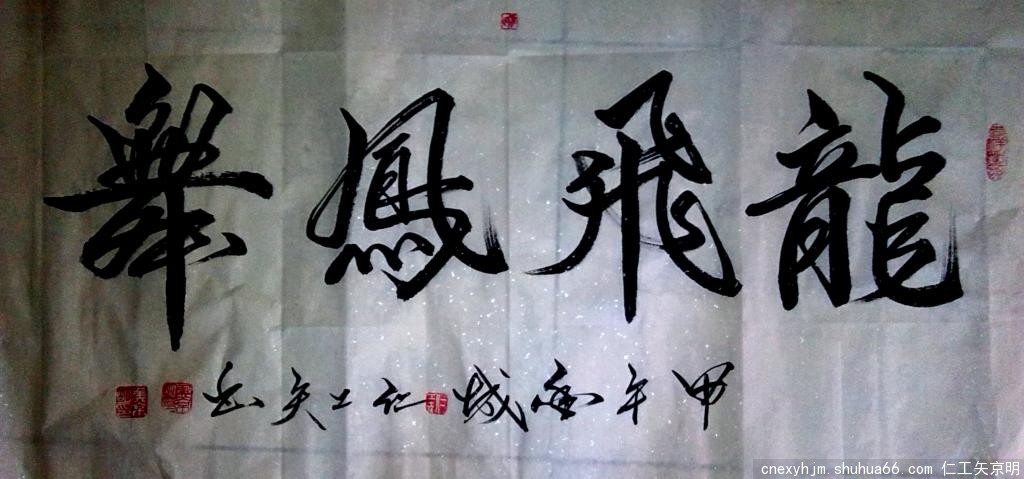 龍飛鳳舞
甲午
城仁工矢
cnexyhjm.shuhua66.com 仁工矢京明